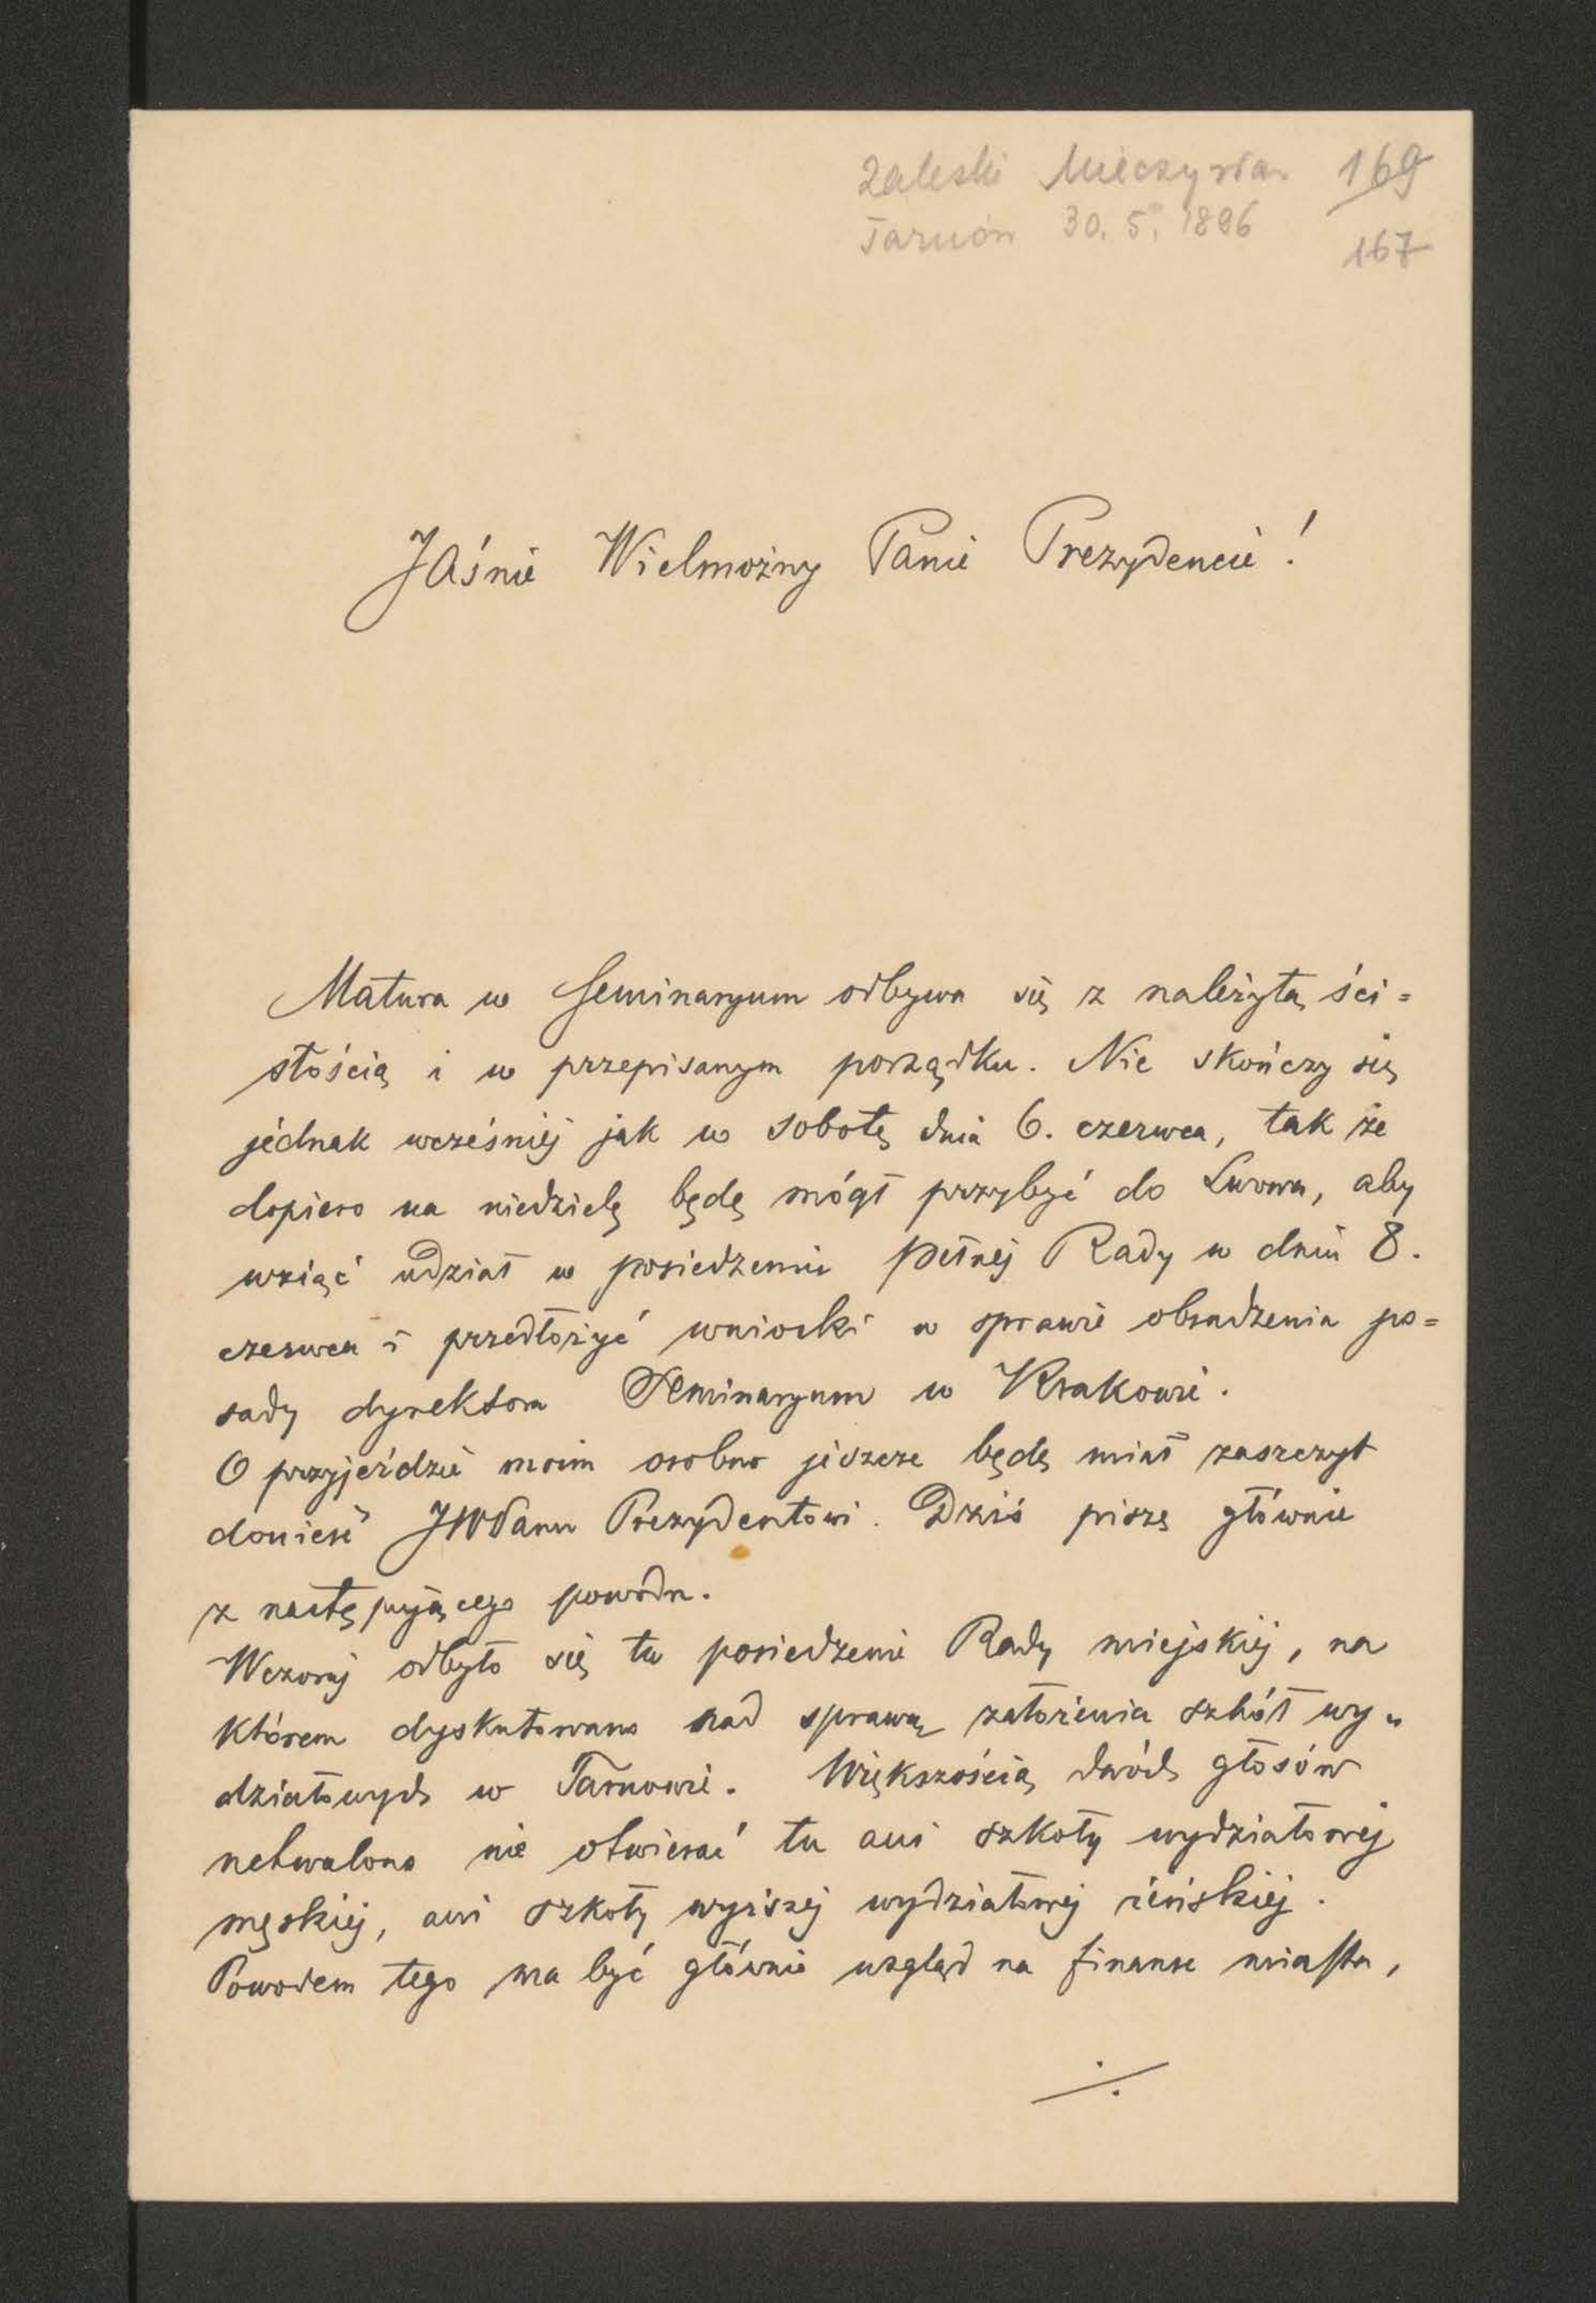 Zaleski Mieczysław 169
Tarnów 30. 5. 1896 167
JAśnie Wielmożny Panie Prezydencie!
Matura w Seminaryum odbywa się z należytą ści=
słością i w przepisanym porządku. Nie skończy się
jednak wcześniej jak w sobotę dnia 6. czerwca, tak że
dopiero na niedzielę będę mógł przybyć do Lwowa, aby
wziąć udział w posiedzeniu pełnej Rady w dniu 8.
czerwca i przedłożyć wnioski w sprawie obsadzenia po=
sady dyrektora Seminaryum w Krakowie.
O przyjeździe moim osobno jeszcze będę miał zaszczyt
donieść JWPanu Prezydentowi. Dziś piszę głównie
z następującego powodu.
Wczoraj odbyło się tu posiedzenie Rady miejskiej, na
którem dyskutowano nad sprawą założenia szkół wy„
działowych w Tarnowie. Większością dwóch głosów
uchwalono nie otwierać tu ani szkoły wydziałowej
męskiej, ani szkoły wyższej wydziałowej żeńskiej.
Powodem tego ma być głównie wzgląd na finanse miasta,
./.